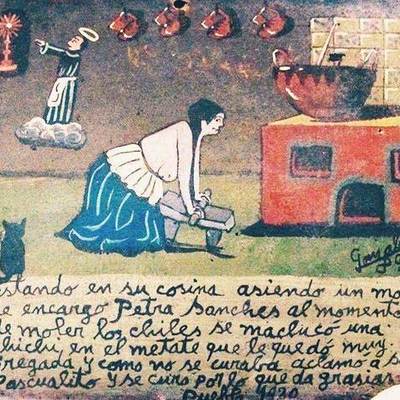 estando en su cosina asiendo un mo
e encargo Petra Sanches al momento
de moler los chiles se maclucó una
chichi, en el metate que le quedó muy
regada y como no se curaba aclamó a s
Pascualito y se curo por lo que da grasias